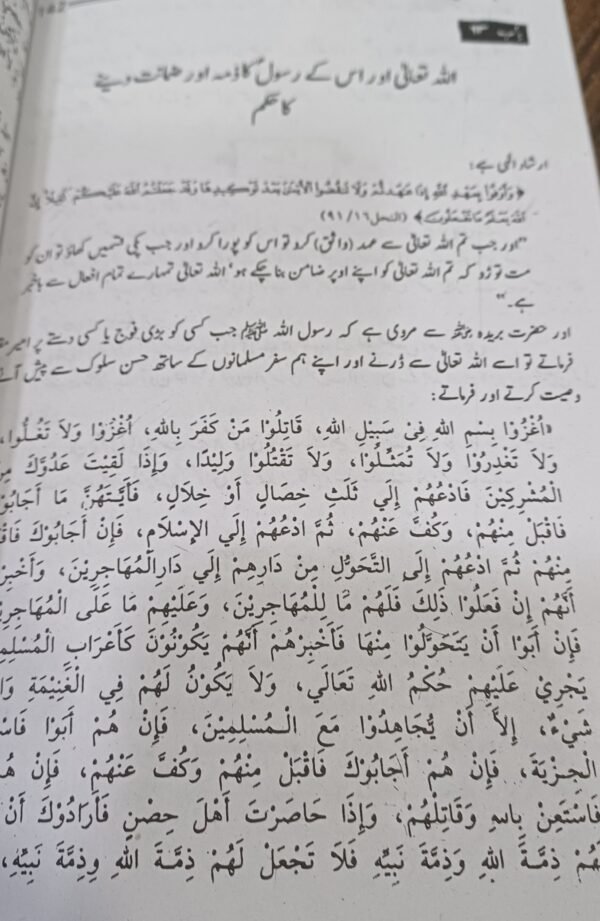 182
باب ۶۳
اللہ تعالیٰ اور اس کے رسول ؐ کا ذمہ اور ضمانت دینے
کا حکم
ارشاد الٰہی ہے:
﴿وَأَوْفُوا بِعَهْدِ اللَّهِ إِذَا عَاهَدتُّمْ وَلَا تَنقُضُوا الْأَيْمَانَ بَعْدَ تَوْكِيدِهَا وَقَدْ جَعَلْتُمُ اللَّهَ عَلَيْكُمْ كَفِيلًا إِنَّ
اللَّهَ يَعْلَمُ مَا تَفْعَلُونَ﴾ (النحل ۹۱/۱۶)
"اور جب تم اللہ تعالیٰ سے عہد (واثق) کرو تو اس کو پورا کرو اور جب پکی قسمیں کھاؤ تو ان کو
مت توڑو کہ تم اللہ تعالیٰ کو اپنے اوپر ضامن بنا چکے ہو' اللہ تعالیٰ تمہارے تمام افعال سے باخبر
ہے۔"
اور حضرت بریدہ رضی اللہ عنہ سے مروی ہے کہ رسول اللہ ﷺ جب کسی کو بڑی فوج یا کسی دستے پر امیر
فرماتے تو اسے اللہ تعالیٰ سے ڈرنے اور اپنے ہم سفر مسلمانوں کے ساتھ حسن سلوک سے پیش آنے
وصیت کرتے اور فرماتے:
«اُغْزُوْا بِسْمِ اللهِ فِيْ سَبِيْلِ اللهِ، قَاتِلُوْا مَنْ كَفَرَ بِاللهِ، اُغْزُوْا وَلاَ تَغُـلُّوا،
وَلاَ تَغْدِرُوْا وَلاَ تُمَثِّـلُوْا، وَلاَ تَقْتُلُوْا وَلِيْدًا، وَإِذَا لَقِيْتَ عَدُوَّكَ مِنَ
الْمُشْرِكِيْنَ فَادْعُهُمْ إِلَي ثَلَثِ خِصَالٍ أَوْ خِلاَلٍ، فَأَيَّـتَهُنَّ مَا أَجَابُوْ
فَاقْبَلْ مِنْهُمْ، وَكُفَّ عَنْهُمْ، ثُمَّ ادْعُهُمْ إِلَي الإِسْلاَمِ، فَإِنْ أَجَابُوْكَ فَاقْ
مِنْهُمْ ثُمَّ ادْعُهُمْ إِلَى التَّحَوُّلِ مِنْ دَارِهِمْ إِلَي دَارِالْمُهَاجِرِيْنَ، وَأَخْبِرْ
أَنَّهُمْ إِنْ فَعَلُوْا ذَلِكَ فَلَهُمْ مَّا لِلْمُهَاجِرِيْنَ، وَعَلَيْهِمْ مَا عَلَى الْمُهَاجِرِيْ
فَإِنْ أَبَوْا أَنْ يَتَحَوَّلُوْا مِنْهَا فَأَخْبِرْهُمْ أَنَّهُمْ يَكُوْنُوْنَ كَأَعْرَابِ الْمُسْلِمِ
يَجْرِيْ عَلَيْهِمْ حُكْمُ اللهِ تَعَالَي، وَلاَ يَكُوْنُ لَهُمْ فِي الْغَنِيْمَةِ وَا
شَيْءٌ، إِلاَّ أَنْ يُّجَاهِدُوْا مَعَ الْـمُسْلِمِيْنَ، فَإِنْ هُمْ أَبَوْا فَاسْ
الْجِـزْيَةَ، فَإِنْ هُمْ أَجَابُوْكَ فَاقْبَلْ مِنْهُمْ وَكُفَّ عَنْهُمْ، فَإِنْ هُ
فَاسْتَعِنْ بِاللهِ وَقَاتِلْهُمْ، وَإِذَا حَاصَرْتَ أَهْلَ حِصْنٍ فَأَرَادُوْكَ أَنْ
لَهُمْ ذِمَّـةَ اللهِ وَذِمَّةَ نَبِيِّهِ فَلاَ تَجْعَلْ لَهُمْ ذِمَّـةَ اللهِ وذِمَّةَ نَبِيِّهِ،